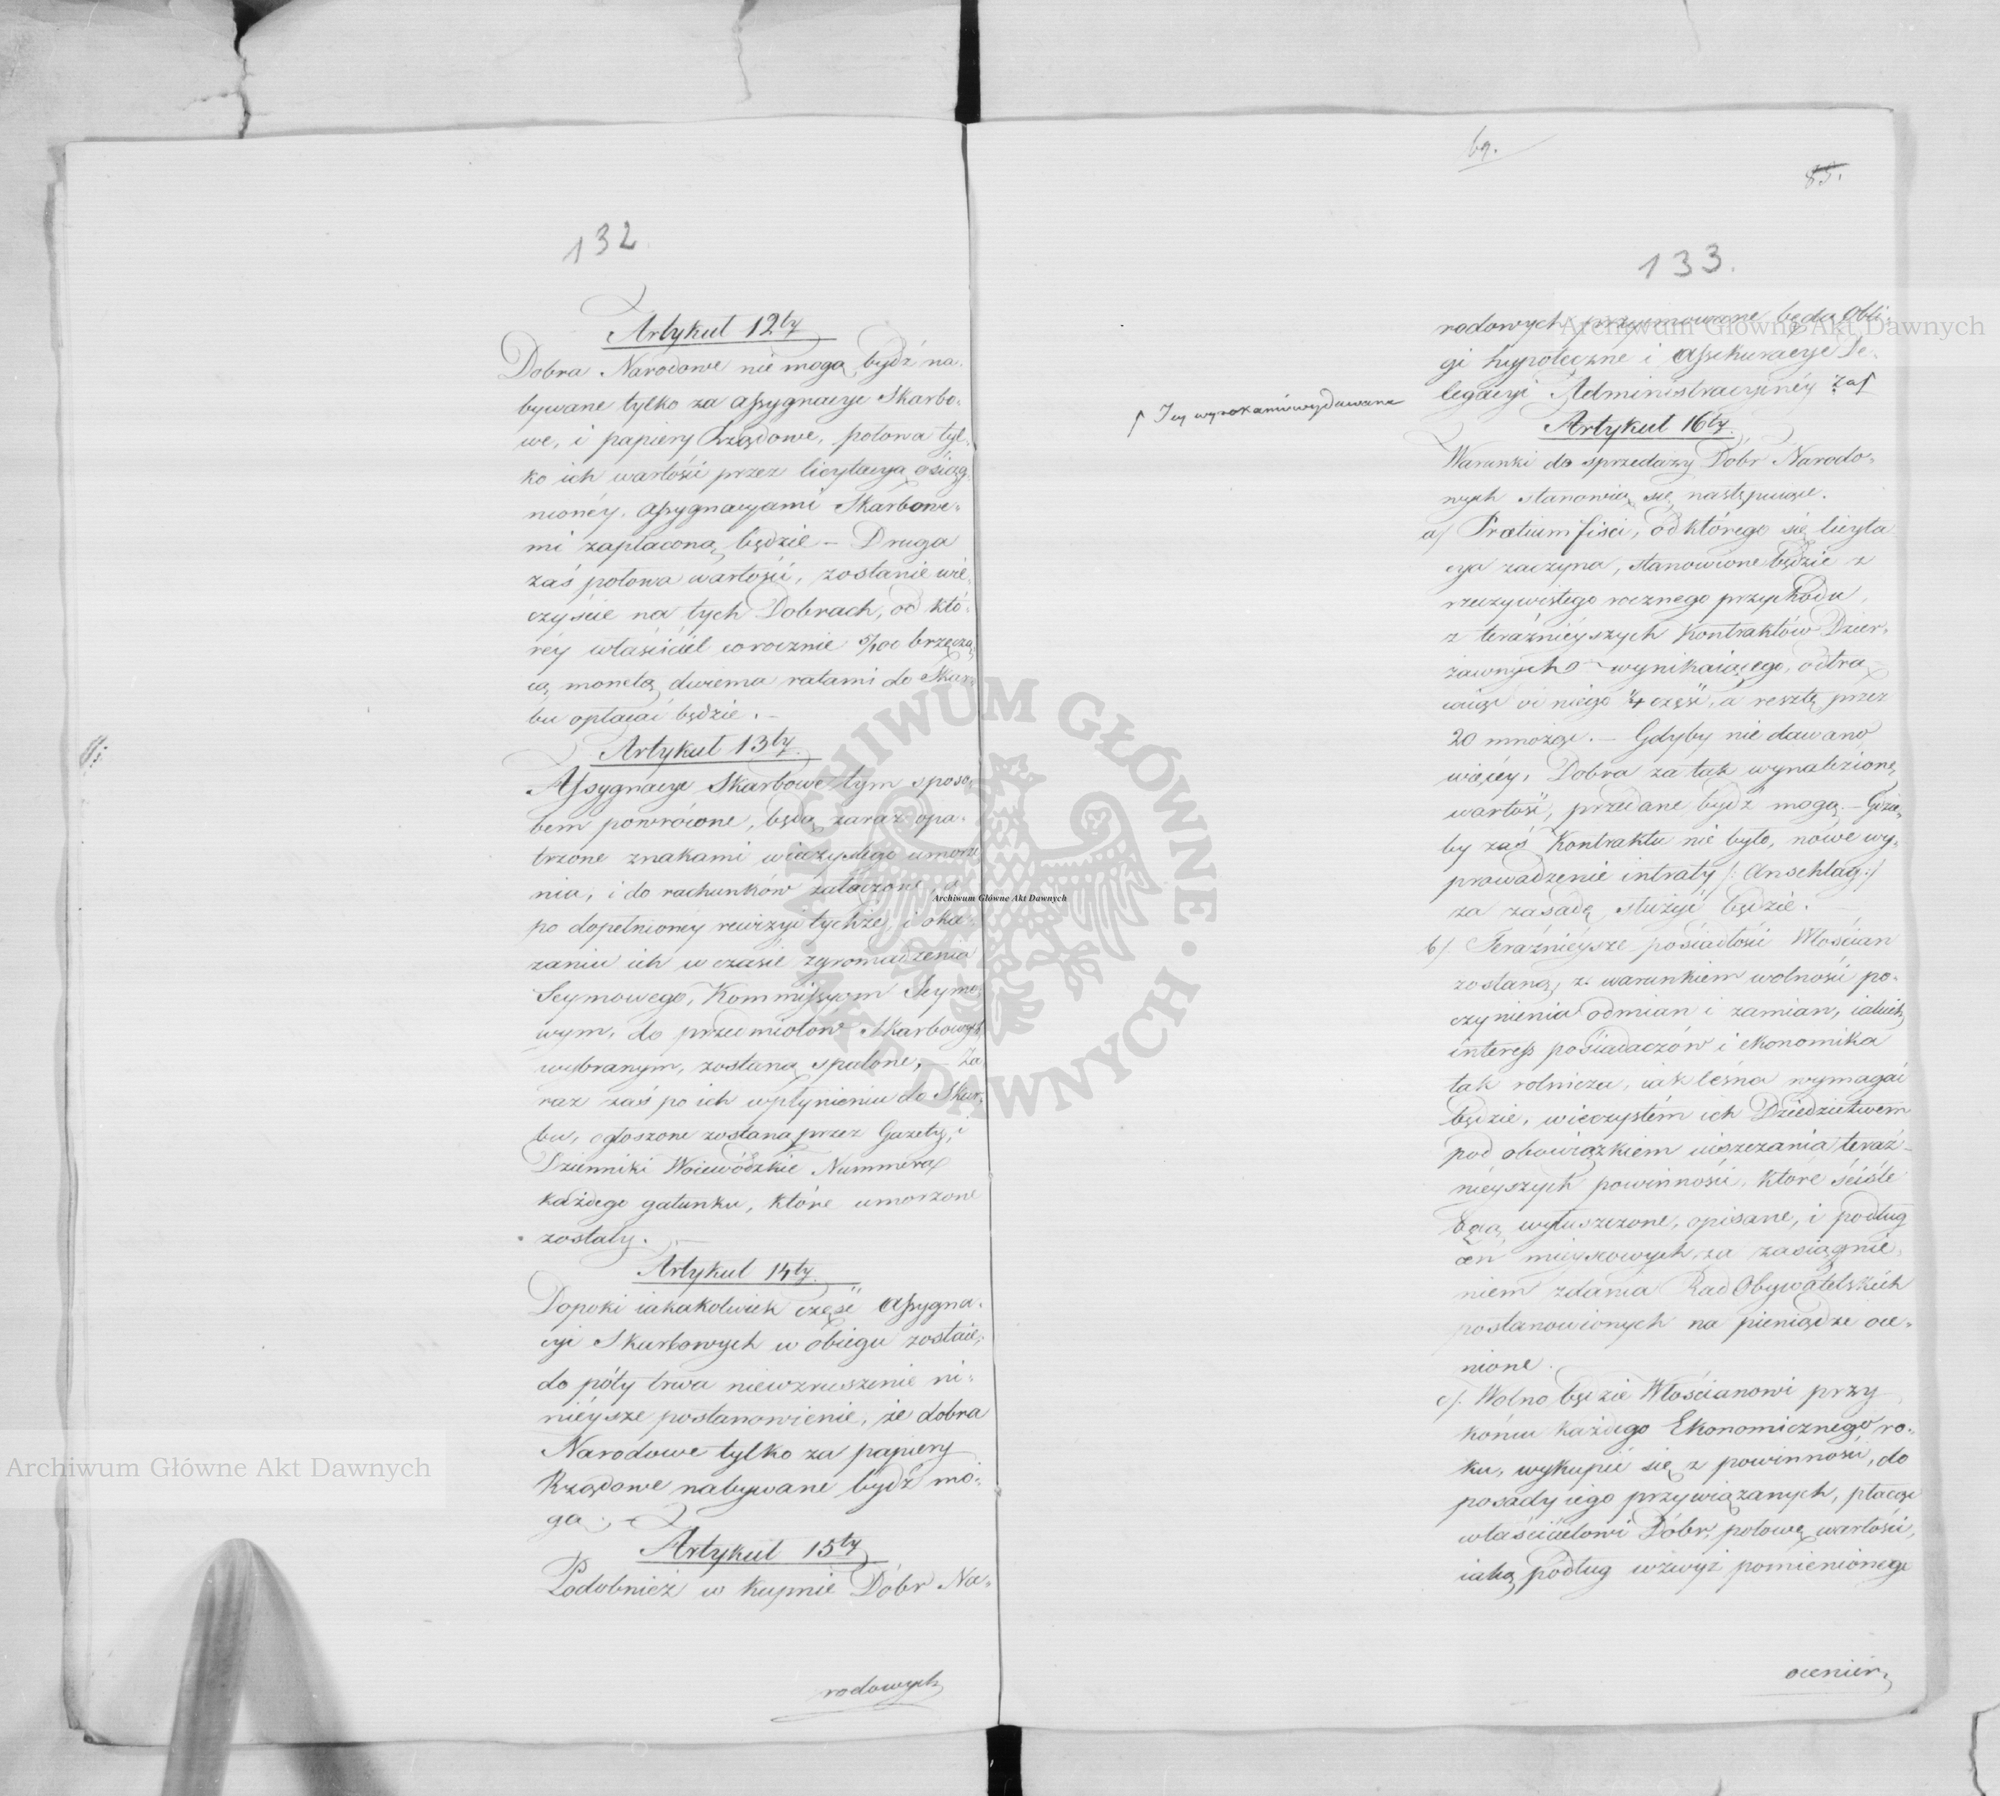 132.
Artykuł 12ty
Dobra Narodowe nie mogą bydź na-
bywane tylko za Assygnacye Skarbo-
we, i papiery Rządowe, połowa tyl-
ko ich wartości przez licytacyą osiąg-
nionéy, Assygnacyami Skarbowe-
mi zapłaconą będzie – Druga
zaś połowa wartości, zostanie wie-
czyście na tych Dobrach, od któ-
réy właściciel corocznie 5/100 brzęczą-
cą monetą dwiema ratami do Skar-
bu opłacać będzie. –
Artykuł 13ty
Assygnacye Skarbowe tym sposo-
bem powrócone, będą zaraz opa-
trzone znakami wieczystego umorze
nia, i do rachunków załączone, a
po dopełnioney rewizyi tychże, i oka-
zaniu ich w czasie zgromadzenia
Seymowego, Kommissyom Seymo
wym, do przedmiotów Skarbowych
wybranym, zostaną spalone. – Za-
raz zaś po ich wpłynieniu do Skar-
bu, ogłoszone zostaną przez Gazety, i
Dzienniki Woiewódzkie Nummera
każdego gatunku, które umorzone
zostały. –
Artykuł 14ty
Dopóki iakakolwiek część Assygna-
cyi Skarbowych w obiegu zostaie,
do póty trwa niewzruszenie ni-
nieysze postanowienie, że dobra
Narodowe tylko za papiery
Rządowe nabywane bydź mo-
gą. –
Artykuł 15ty
Podobnież w kupnie Dóbr Na-
rodowych
85.
133.
rodowych przyimowane będą Obli-
gi hypoteczne i Assekuracye De-
legacyi Administracyinéy zaś
Jey wyrokami wydawane
Artykuł 16ty
Warunki do sprzedaży Dóbr Narodo-
wych stanowią się następuiące.
a/ Prætium fisci, od którego się licyta
cya zaczyna, stanowione będzie z
rzeczywistego rocznego przychodu,
z teraźnieyszych Kontraktów Dzier-
żawnych wynikaiącego, odtrą
caiąc od niego 1/4 część, a resztę przez
20 mnożąc. – Gdyby nie dawano
więcey, Dobra za tak wynalezioną
wartość, przedane bydź mogą. – Gdzie-
by zaś Kontraktu nie było, nowe wy-
prowadzenie intraty /: Anschlag :/
za zasadę służyć będzie.
b/. Teraźnieysze posiadłości Włościan
zostaną, z warunkiem wolności po-
czynienia odmian i zamian, iakich
interess posiadaczów i ekonomika
tak rolnicza, iak leśna wymagać
będzie, wieczystém ich Dziedzictwem
pod obowiązkiem uiszczania teraź-
nieyszych powinności, które ściśle
będą wyłuszczone, opisane, i podług
cen mieyscowych, za zasiągnie-
niem zdania Rad Obywatelskich
postanowionych na pieniądze oce-
nione.
c/. Wolno będzie Włościanowi przy
końcu każdego Ekonomicznego ro-
ku, wykupić się z powinności, do
posady iego przywiązanych, płacąc
właścicielowi Dóbr, połowę wartości,
iaką podług wzwyż pomienionego
ocenie-
Archiwum Główne Akt Dawnych
Archiwum Główne Akt Dawnych
Archiwum Główne Akt Dawnych
ARCHIWUM GŁÓWNE AKT DAWNYCH